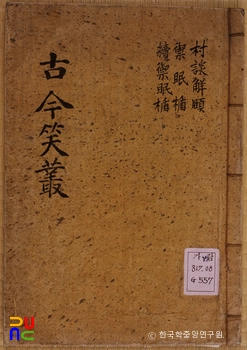 村談解頤
禦眠楯
續禦眠楯
古今笑叢
가람
817.08
G557
© 한국학중앙연구원